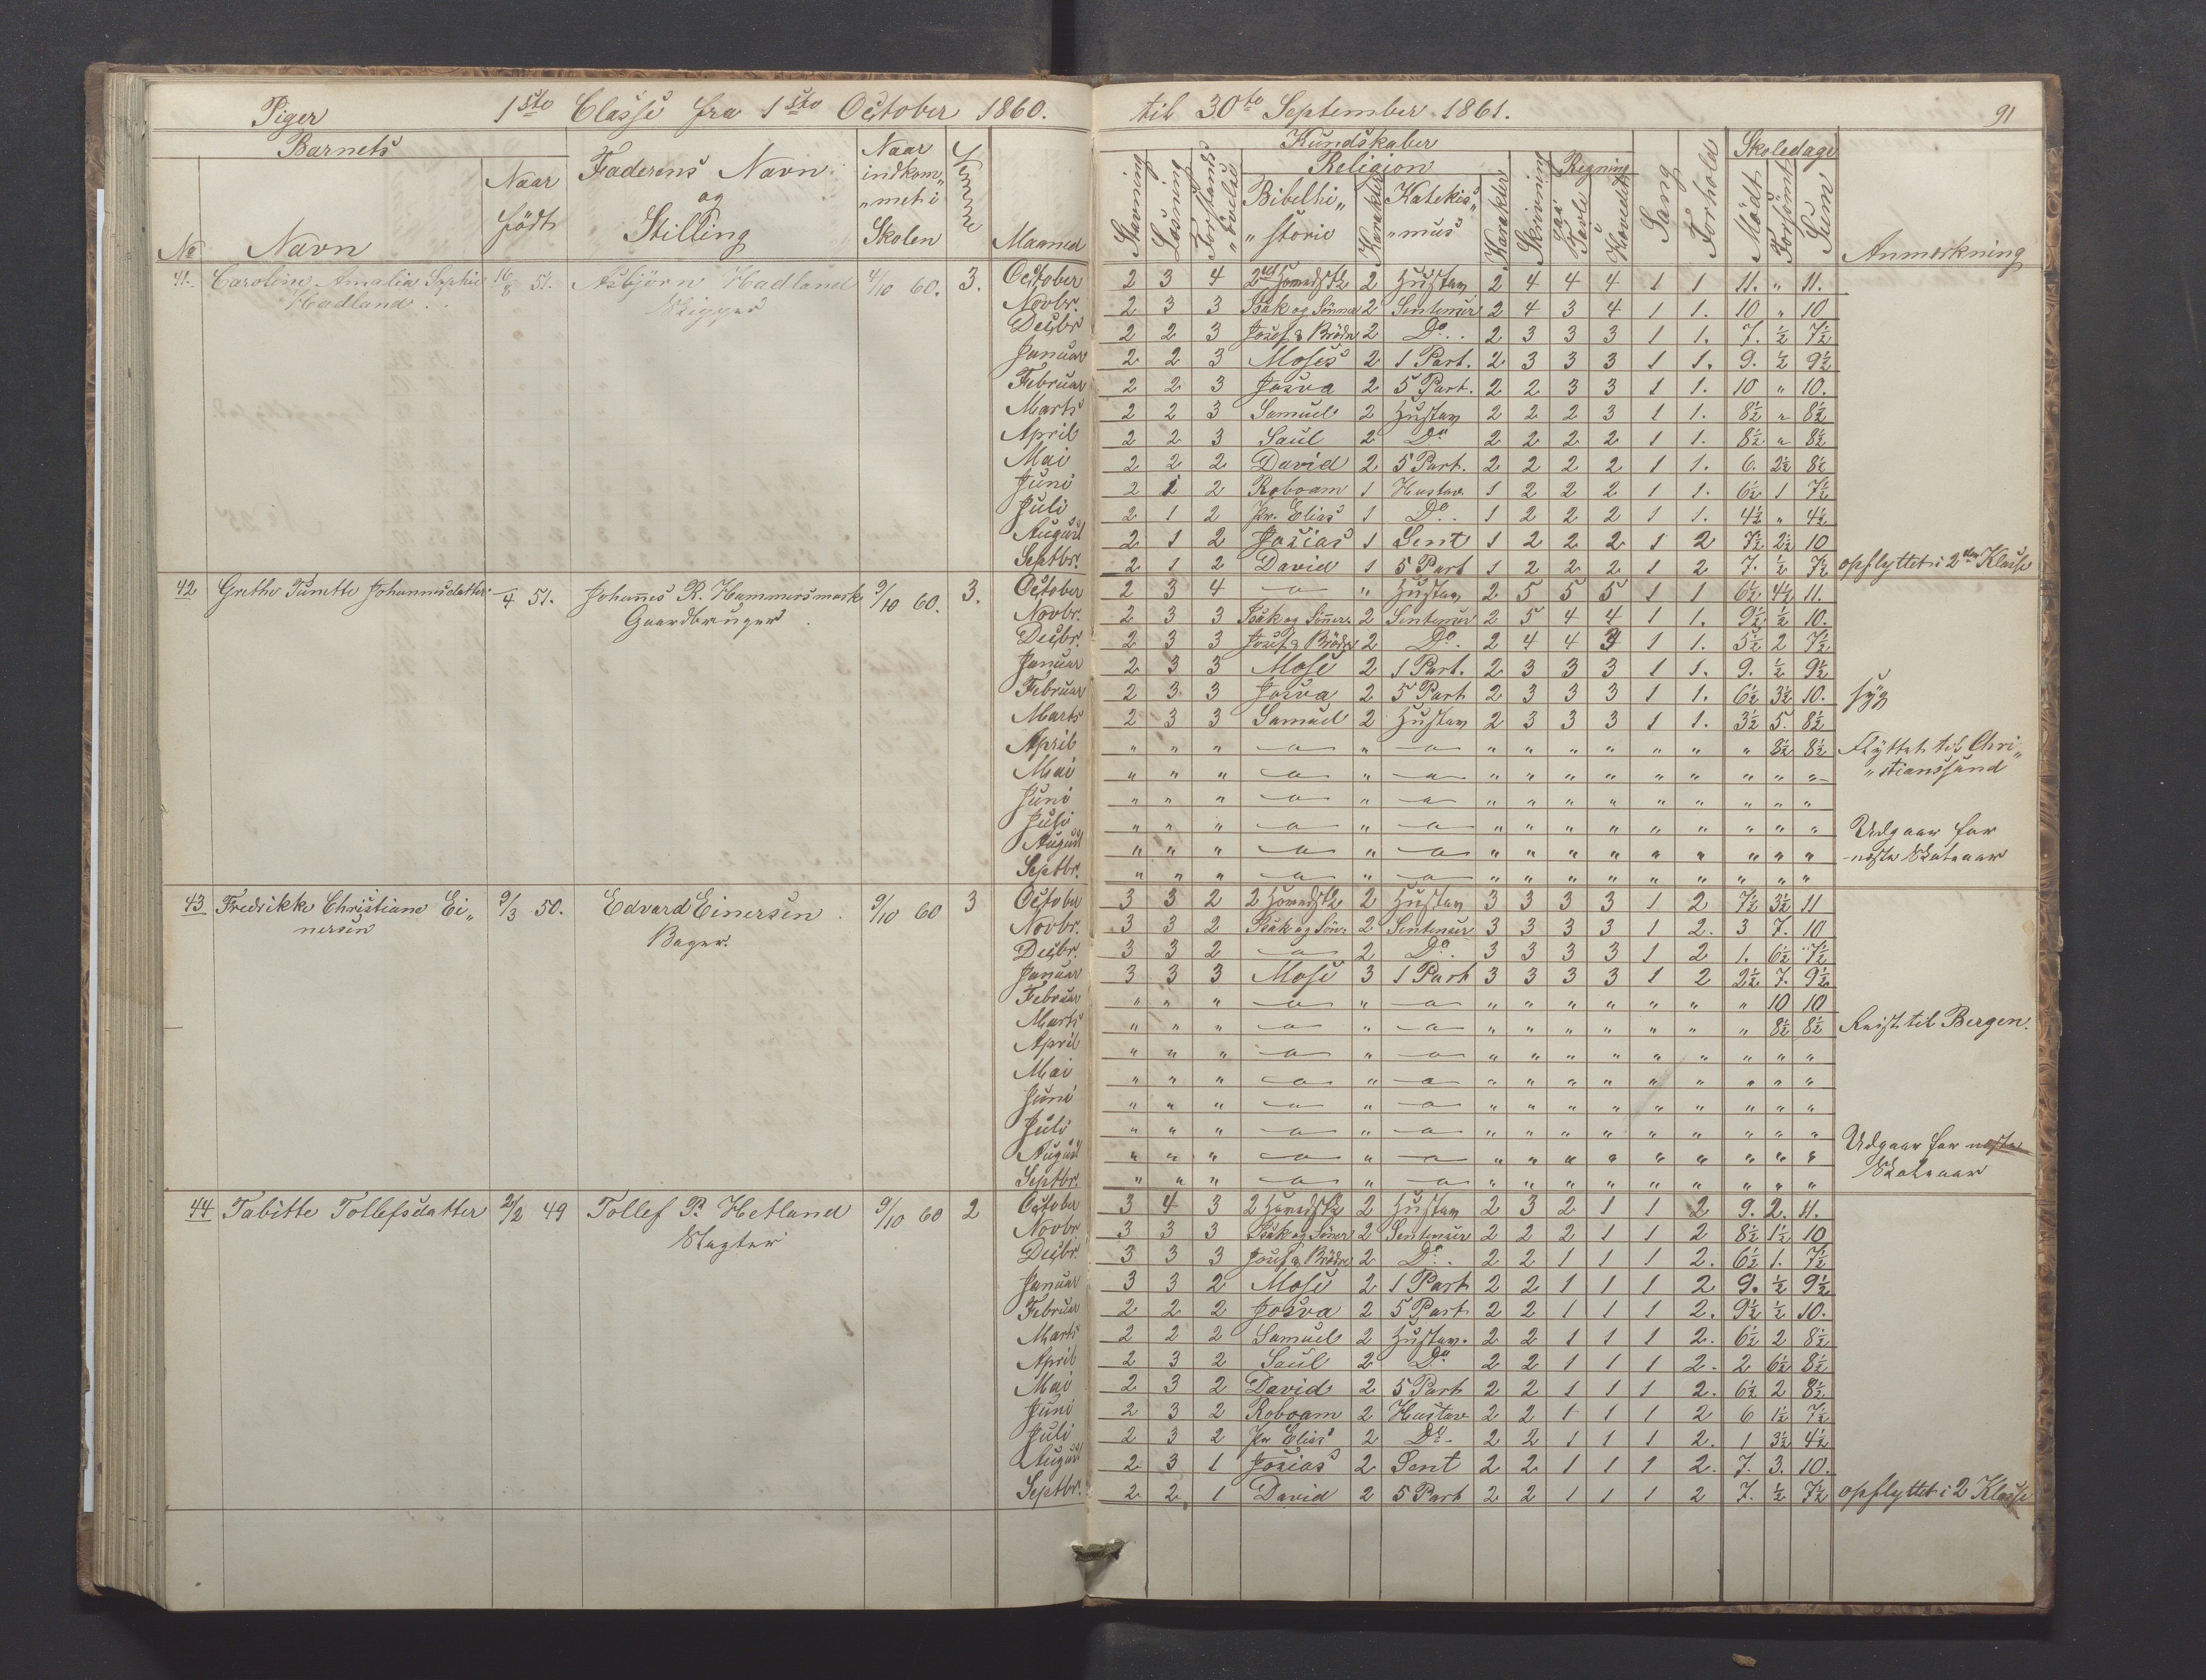 Piger 1ste Classe fra 1ste October 1860. til 30te September 1861. 91
Barnets
No Navn Naar födt Faderens Navn og Stilling Naar indkom„ „met i Skolen Evne Maaned
Kundskaber
Stavning Læsning Forstands „övelse Religion Bibelhi„ „storie Karakter Katekis„ „mus Karakter Skrivning Regning paa Tavle Hovedet Sang Forhold Skoledage Mödt Forsömt Sum Anmærkning
41. Caroline Amalia Sophie Hadland 16/8 51. Asbjörn Hadland 4/10 60. 3.
October 2 3 4 2 2 4 4 4 1 1 11. „ 11.
Novbr. 2 3 3 Isak og Sönner 2 2 4 3 4 1 1. 10 „ 10
Decbr 2 2 3 Josef & Brödre 2 Do. 2 3 3 3 1 1. 7. ½ 7½
Januar 2 2 3 Moses 2 1 Part. 2 3 3 3 1 1. 9. ½ 9½
Februar 2 2 3 Josva 2 5 Part. 2 2 3 3 1 1. 10 „ 10.
Marts 2 2 3 Samuel 2 2 2 2 3 1 1. 8½ „ 8½
April 2 2 3 Saul 2 Do 2 2 2 2 1 1. 8½ „ 8½
Mai 2 2 2 David 2 5 Part. 2 2 2 2 1 1. 6. 2½ 8½
Juni 2 1 2 Roboam 1 Hustav 1 2 2 2 1 1. 6½ 1 7½
Juli 2 1 2 Elias 1 Do. 1 2 2 2 1 1. 4½ „ 4½
August 2 1 2 Josias 1 Sent 1 2 2 2 1 2 7½ 2½ 10
Septbr. 2 1 2 David 1 5 Part 1 2 2 2 1 2 7. ½ 7½ opflyttet i 2den Klasse
42 Grethe Johannesdatter /4 51. Johannes R. Hammersmark Gaardbruger 9/10 60. 3.
October 2 3 4 „ 2 5 5 5 1 1 6½ 4½ 11.
Novbr. 2 3 3 Isak og Sönner 2 2 5 4 4 1 1. 9½ ½ 10.
Decbr. 2 3 3 Josef & Brödre 2 Do. 2 4 4 3 1 1. 5½ 2 7½
Januar 2 3 3 Mose 2 1 Part. 2 3 3 3 1 1. 9. ½ 9½
Februar 2 3 3 Josva 2 5 Part 2 3 3 3 1 1. 6½ 3½ 10. syg
Marts 2 3 3 Samuel 2 2 3 3 3 1 1. 3½ 5. 8½
April „ „ „ „ „ „ „ „ „ „ „ 8½ 8½ Flyttet til Chri„
Mai „ „ „ „ „ „ „ „ „ „ „ „ „ „stianssund
Juni „ „ „ „ „ „ „ „ „ „ „ „ „
Juli „ „ „ „ „ „ „ „ „ „ „ „ „ Udgaar for
August „ „ „ „ „ „ „ „ „ „ „ „ „ næste Skoleaar
Septbr. „ „ „ „ „ „ „ „ „ „ „ „ „
43 Fredrikke Christiane Ei„ nersen 9/3 50. Edvard Einersen Bager. 9/10 60 3
October 3 3 2 2 3 3 3 3 1 2 7½ 3½ 11
Novbr. 3 3 2 Isak og Sön: 2 3 3 3 3 1 2. 3 7. 10
Decbr. 3 3 2 2 Do. 3 3 3 3 1 2 1. 6½ 7½
Januar 3 3 3 Mose 3 1 Part 3 3 3 3 1 2 2½ 7. 9½
Februar „ „ „ „ „ „ „ „ „ „ „ 10 10
Marts „ „ „ „ „ „ „ „ „ „ „ 8½ 8½ Reist til Bergen.
April „ „ „ „ „ „ „ „ „ „ „ „ „
Mai „ „ „ „ „ „ „ „ „ „ „ „ „
Juni „ „ „ „ „ „ „ „ „ „ „ „ „
Juli „ „ „ „ „ „ „ „ „ „ „ „ „
August „ „ „ „ „ „ „ „ „ „ „ „ „ Udgaar for næste
Septbr. „ „ „ „ „ „ „ „ „ „ „ „ „ Skoleaar
44 Tabitte Tollefsdatter 2/2 49 Tollef P. Hetland Slagter 9/10 60 2
October 3 4 3 2 2 3 2 1 1 2 9. 2. 11.
Novbr 3 3 3 Isak og Söner 2 2 2 2 1 1 2 8½ 1½ 10
Decbr. 3 3 3 Josef & Brödre 2 Do. 2 2 1 1 1 2. 6½ 1. 7½
Januar 3 3 2 Mose 2 1 Part 2 2 1 1 1 2 9. ½ 9½
Februar 2 2 2 Josva 2 5 Part 2 2 1 1 1 2. 9½ ½ 10.
Marts 2 2 2 Samuel 2 2 2 1 1 1 2. 6½ 2 8½
April 2 3 2 Saul 2 Do 2 2 1 1 1 2. 2 6½ 8½
Mai 2 3 2 David 2 5 Part 2 2 1 1 1 2. 6½ 2 8½
Juni 2 3 2 Roboam 2 Hustav 2 2 1 1 1 2 6 1½ 7½
Juli 2 3 2 Elias 2 Do. 2 2 1 1 1 2. 1 3½ 4½
August 2 3 1 Josias 2 Sent 2 2 1 1 1 2. 7. 3. 10.
Septbr. 2 2 1 David 2 5 Part 2 2 1 1 1 2 7. ½ 7½ opflyttet i 2 Klasse